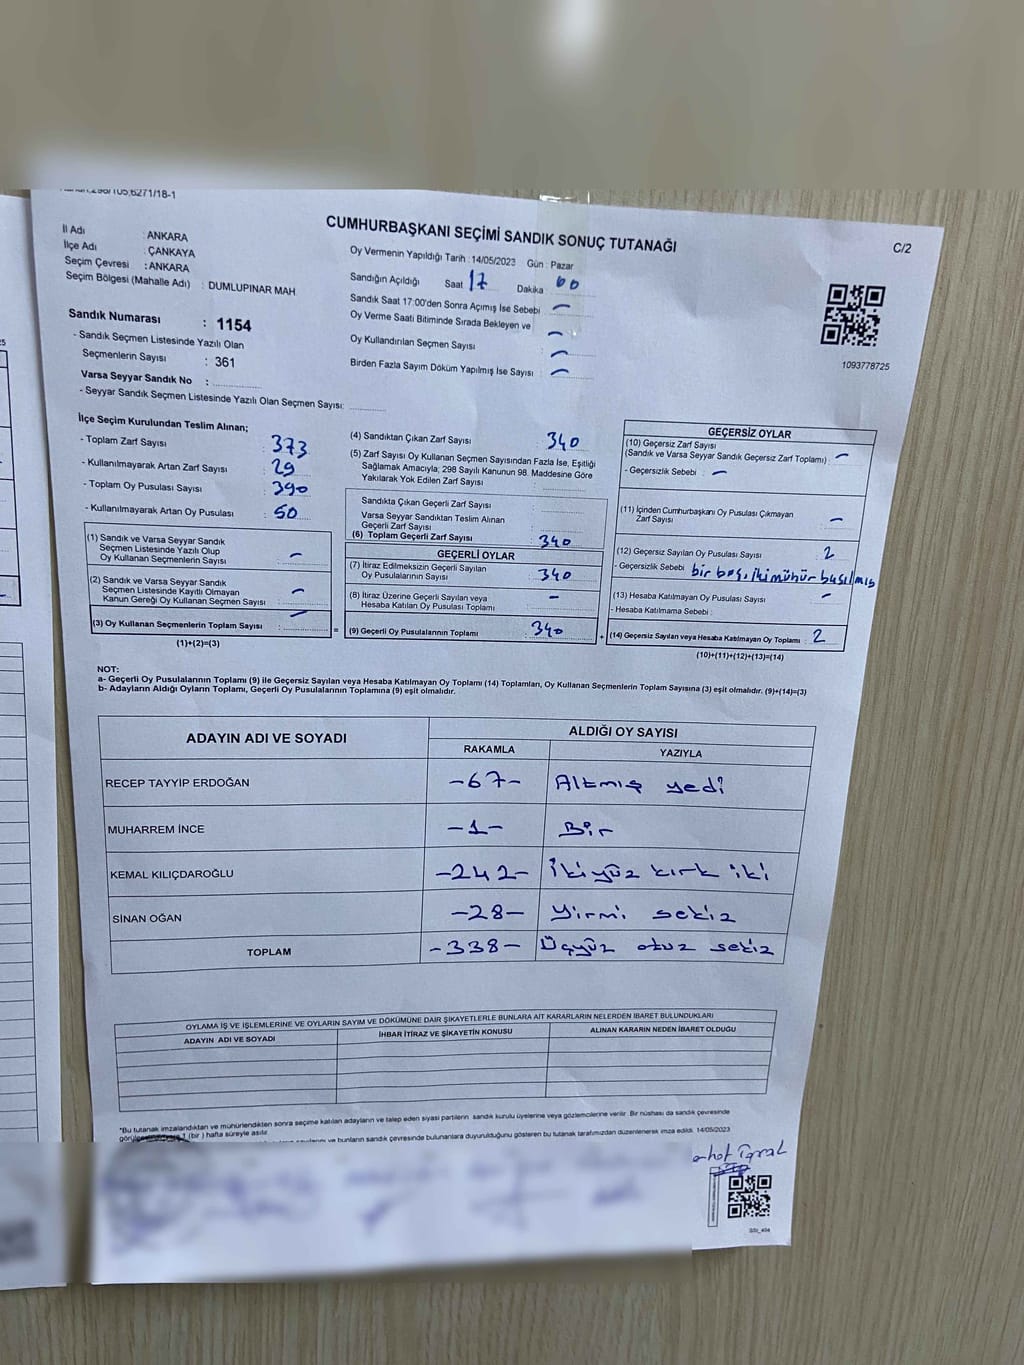 CUMHURBAŞKANI SEÇİMİ SANDIK SONUÇ TUTANAĞI
C/2
İl Adı : ANKARA
İlçe Adı : ÇANKAYA
Seçim Çevresi : ANKARA
Seçim Bölgesi (Mahalle Adı) : DUMLUPINAR MAH
Sandık Numarası : 1154
- Sandık Seçmen Listesinde Yazılı Olan
Seçmenlerin Sayısı : 361
Varsa Seyyar Sandık No :
- Seyyar Sandık Seçmen Listesinde Yazılı Olan Seçmen Sayısı:
Oy Vermenin Yapıldığı Tarih : 14/05/2023 Gün : Pazar
Sandığın Açıldığı Saat 17 Dakika 00
Sandık Saat 17:00'den Sonra Açımış İse Sebebi –
Oy Verme Saati Bitiminde Sırada Bekleyen ve –
Oy Kullandırılan Seçmen Sayısı : –
Birden Fazla Sayım Döküm Yapılmış İse Sayısı : –
1093778725
İlçe Seçim Kurulundan Teslim Alınan;
- Toplam Zarf Sayısı : 373
- Kullanılmayarak Artan Zarf Sayısı : 29
- Toplam Oy Pusulası Sayısı : 390
- Kullanılmayarak Artan Oy Pusulası : 50
(1) Sandık ve Varsa Seyyar Sandık
Seçmen Listesinde Yazılı Olup
Oy Kullanan Seçmenlerin Sayısı : –
(2) Sandık ve Varsa Seyyar Sandık
Seçmen Listesinde Kayıtlı Olmayan
Kanun Gereği Oy Kullanan Seçmen Sayısı : –
(3) Oy Kullanan Seçmenlerin Toplam Sayısı : –
(1)+(2)=(3)
(4) Sandıktan Çıkan Zarf Sayısı : 340
(5) Zarf Sayısı Oy Kullanan Seçmen Sayısından Fazla İse, Eşitliği
Sağlamak Amacıyla; 298 Sayılı Kanunun 98. Maddesine Göre
Yakılarak Yok Edilen Zarf Sayısı :
Sandıkta Çıkan Geçerli Zarf Sayısı :
Varsa Seyyar Sandıktan Teslim Alınan
Geçerli Zarf Sayısı :
(6) Toplam Geçerli Zarf Sayısı : 340
GEÇERLİ OYLAR
(7) İtiraz Edilmeksizin Geçerli Sayılan
Oy Pusulalarının Sayısı : 340
(8) İtiraz Üzerine Geçerli Sayılan veya
Hesaba Katılan Oy Pusulası Toplamı : –
= (9) Geçerli Oy Pusulalarının Toplamı : 340 +
GEÇERSİZ OYLAR
(10) Geçersiz Zarf Sayısı
(Sandık ve Varsa Seyyar Sandık Geçersiz Zarf Toplamı) : –
- Geçersizlik Sebebi : –
(11) İçinden Cumhurbaşkanı Oy Pusulası Çıkmayan
Zarf Sayısı : –
(12) Geçersiz Sayılan Oy Pusulası Sayısı : 2
- Geçersizlik Sebebi : bir boş, iki mühür basılmış
(13) Hesaba Katılmayan Oy Pusulası Sayısı : –
- Hesaba Katılmama Sebebi :
(14) Geçersiz Sayılan veya Hesaba Katılmayan Oy Toplamı : 2
(10)+(11)+(12)+(13)=(14)
NOT:
a- Geçerli Oy Pusulalarının Toplamı (9) ile Geçersiz Sayılan veya Hesaba Katılmayan Oy Toplamı (14) Toplamları, Oy Kullanan Seçmenlerin Toplam Sayısına (3) eşit olmalıdır. (9)+(14)=(3)
b- Adayların Aldığı Oyların Toplamı, Geçerli Oy Pusulalarının Toplamına (9) eşit olmalıdır.
ADAYIN ADI VE SOYADI
ALDIĞI OY SAYISI
RAKAMLA YAZIYLA
RECEP TAYYİP ERDOĞAN -67- Altmış yedi
MUHARREM İNCE -1- Bir
KEMAL KILIÇDAROĞLU -242- İkiyüz kırk iki
SİNAN OĞAN -28- Yirmi sekiz
TOPLAM -338- Üçyüz otuz sekiz
OYLAMA İŞ VE İŞLEMLERİNE VE OYLARIN SAYIM VE DÖKÜMÜNE DAİR ŞİKAYETLERLE BUNLARA AİT KARARLARIN NELERDEN İBARET BULUNDUKLARI
ADAYIN ADI VE SOYADI İHBAR İTİRAZ VE ŞİKAYETİN KONUSU ALINAN KARARIN NEDEN İBARET OLDUĞU
*Bu tutanak imzalandıktan ve mühürlendikten sonra seçime katılan adayların ve talep eden siyasi partilerin sandık kurulu üyelerine veya gözlemcilerine verilir. Bir nüshası da sandık çevresinde
1 (bir) hafta süreyle asılır.
ve bunların sandık çevresinde bulunanlara duyurulduğunu gösteren bu tutanak tarafımızdan düzenlenerek imza edildi. 14/05/2023